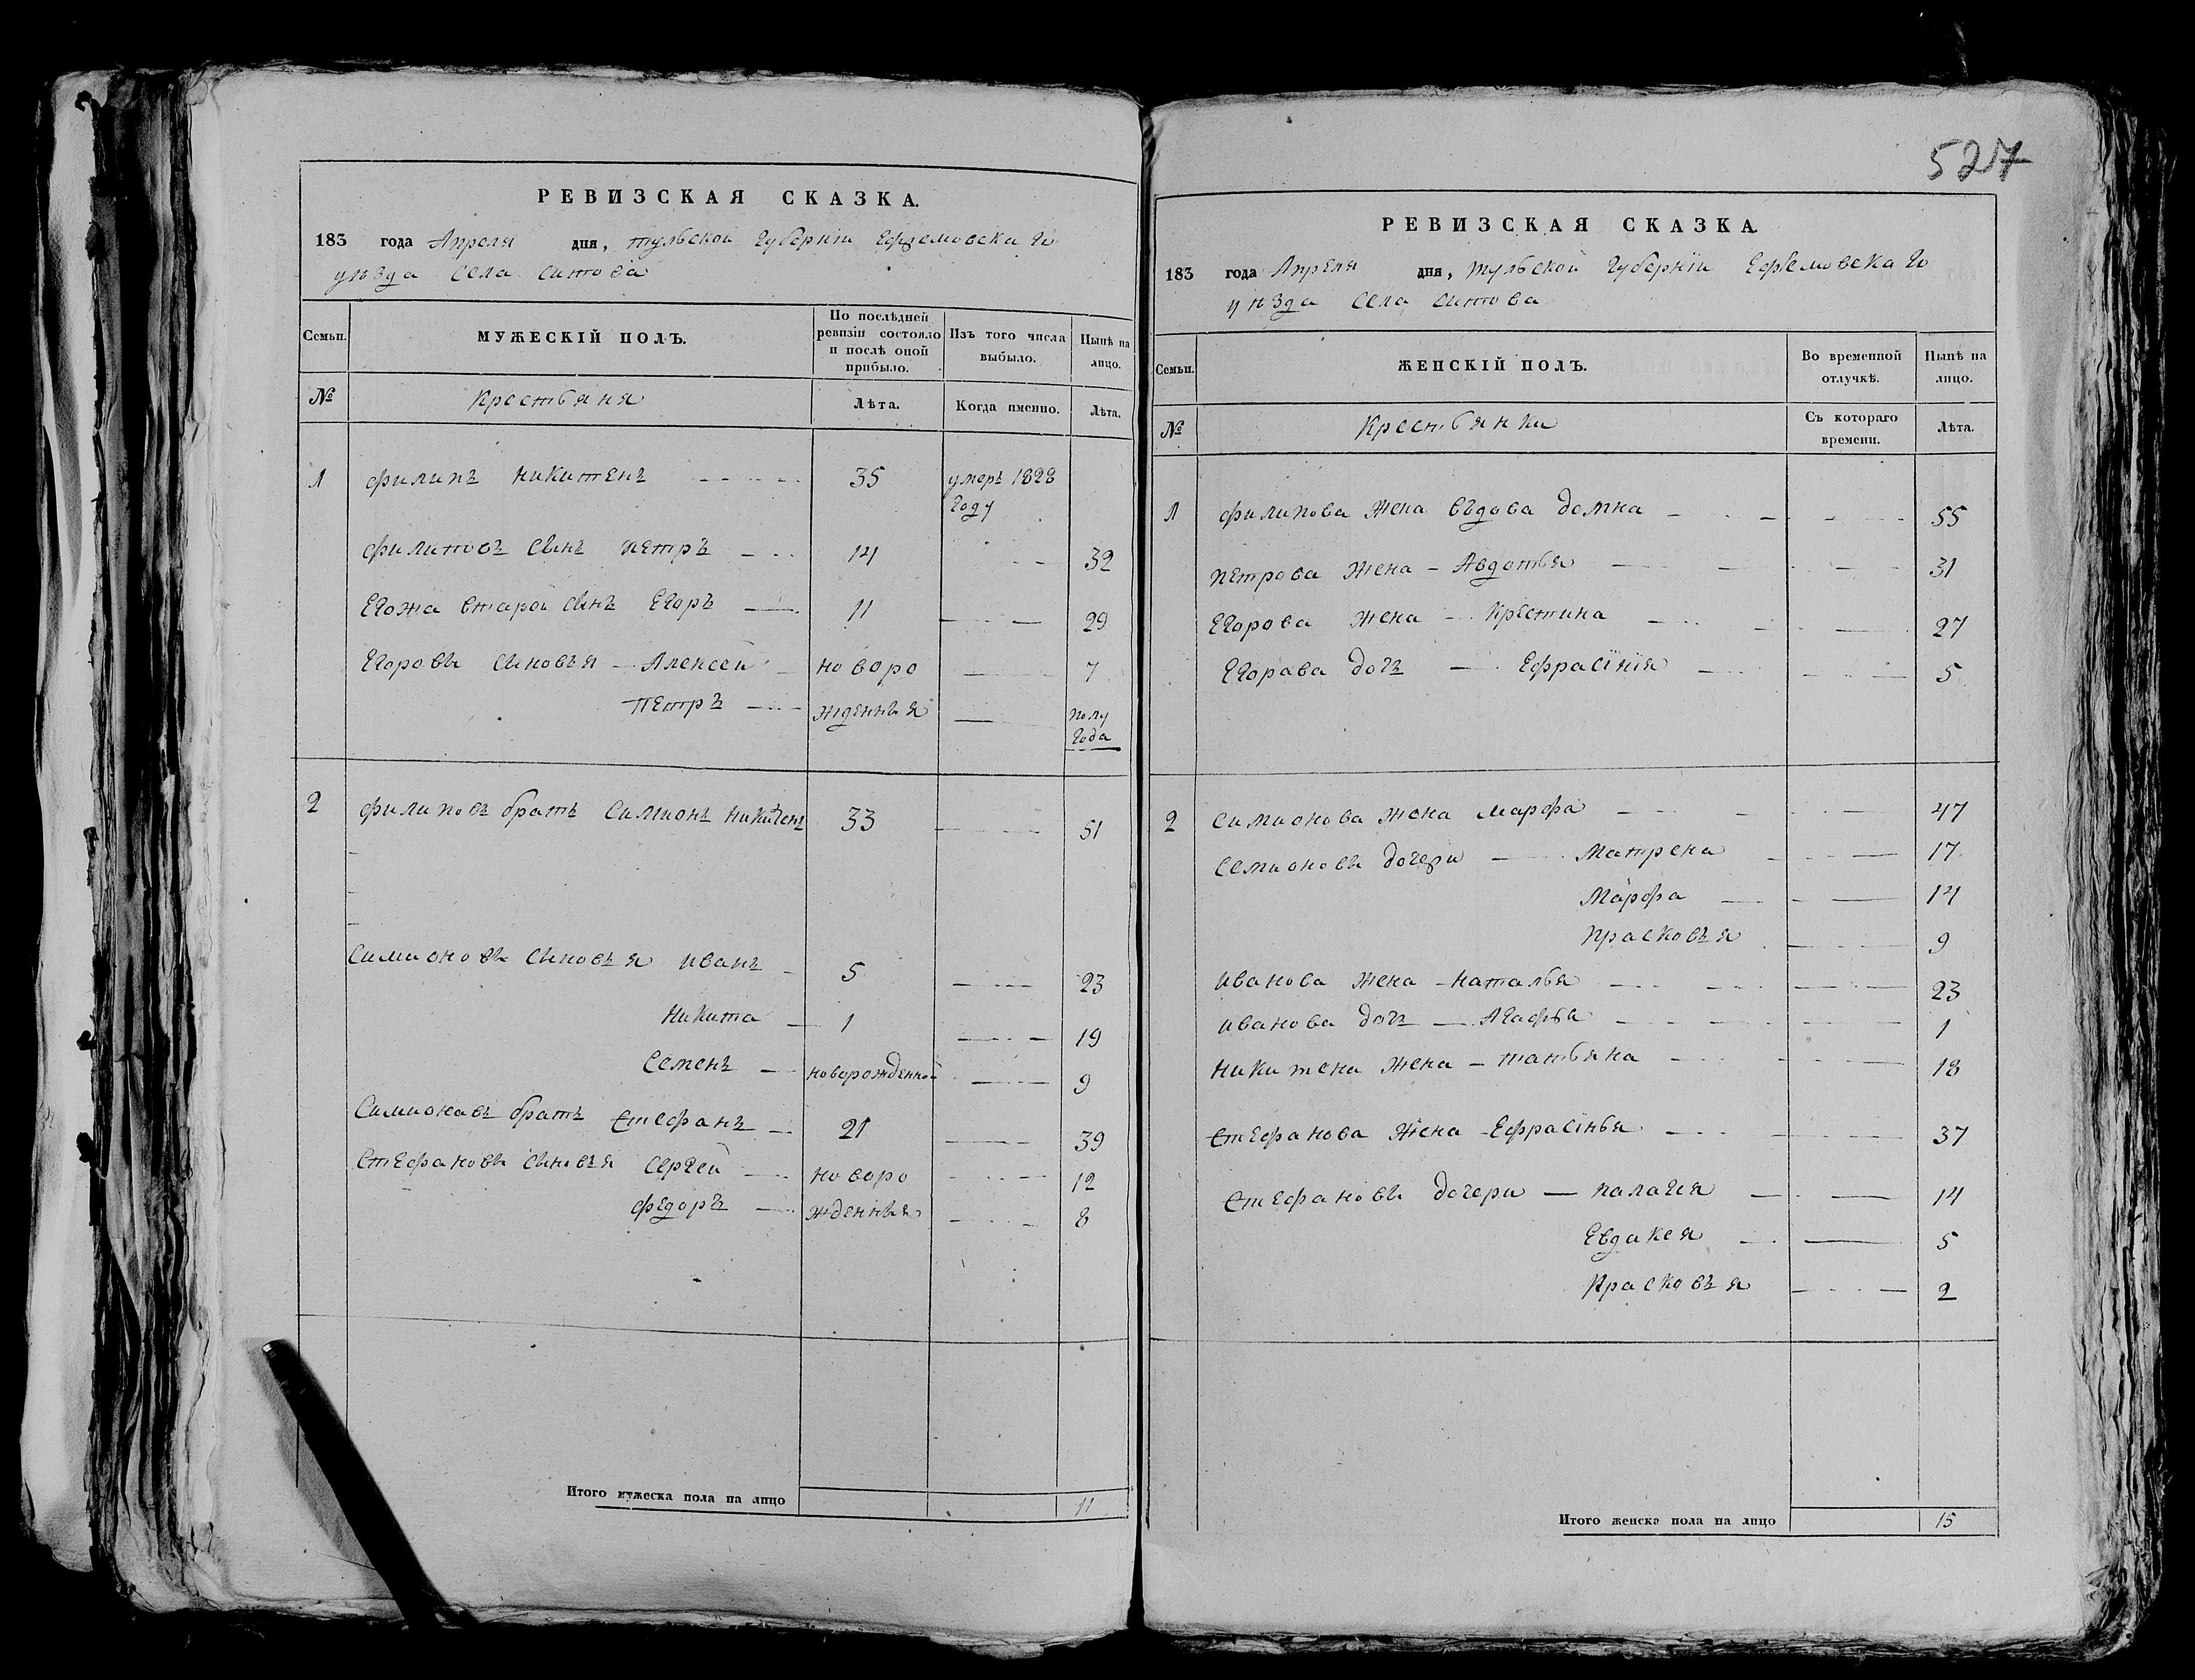 527
РЕВИЗСКАЯ СКАЗКА.
183 года Апреля дня, тульской губернїи Ефремовска го
уѣзда села ситова
Семьи. МУЖЕСКІЙ ПОЛЪ. По послѣдней ревизіи состояло и послѣ оной прибыло. Изъ того числа выбыло. Нынѣ на лицо.
№ Крестьяня Лѣта. Когда именно. Лѣта.
1 филипъ никитенъ 35 умеръ 1828
году
филиповъ сынъ петръ 14 32
Егожа вторай сынъ Егоръ 11 29
Егоровы сыновъя Алексей новоро 7
Петръ жденныя полу
года
2 филиповъ братъ Симионъ никитенъ 33 51
Симионовы сыновъя иванъ 5 23
Никита 1 19
Семенъ новорожденной 9
Симионавъ братъ Стефанъ 21 39
Стефановы сыновъя Сергей новоро 12
федоръ жденныя 8
Итого мужеска пола на лицо 11
РЕВИЗСКАЯ СКАЗКА.
183 года Апреля дня, тульской губернїи Ефремовска го
уѣзда села ситова
Семьи. ЖЕНСКІЙ ПОЛЪ. Во временной отлучкѣ. Нынѣ на лицо.
№ Крестьянки Съ котораго времени. Лѣта.
1 филипова жена въдова домна 55
петрова жена Авдотья 31
Егорова жена Крестина 27
Егорава дочъ Ефрасїнїя 5
2 симионова жена марфа 47
Семионовы дочери Матрена 17
Марфа 14
прасковъя 9
иванова жена наталья 23
иванова дочъ Агафья 1
никитена жена татьяна 18
Стефанова жена Ефрасїнья 37
Стефановы дочери палагея 14
Евдакея 5
Прасковъя 2
Итого женска пола на лицо 15